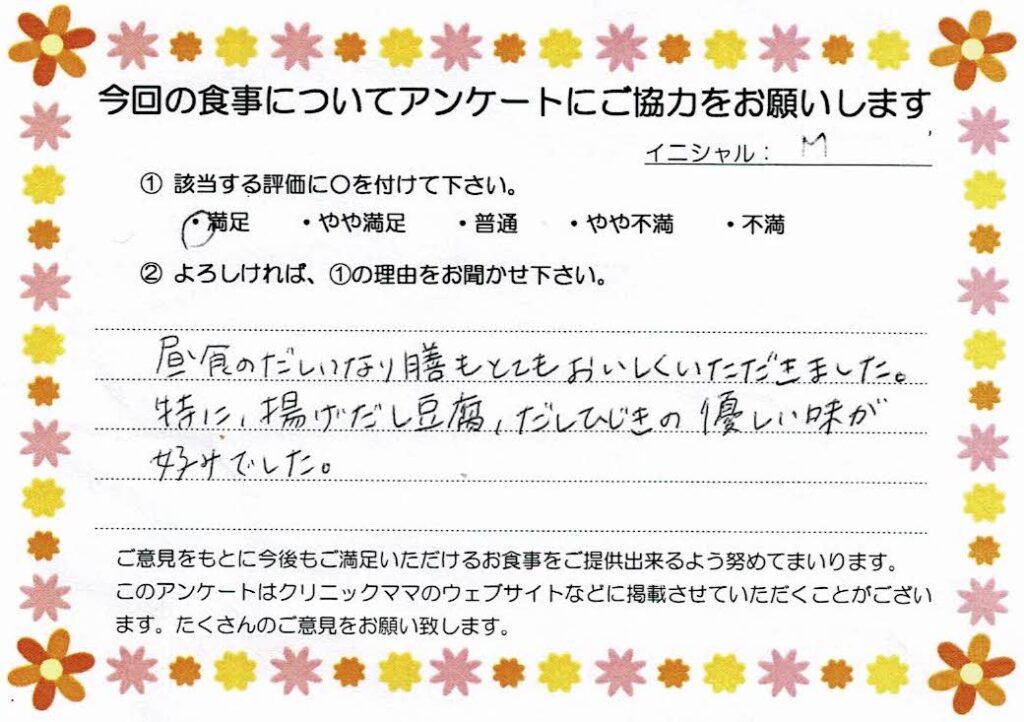 今回の食事についてアンケートにご協力をお願いします
イニシャル： M
① 該当する評価に〇を付けて下さい。
・満足 ・やや満足 ・普通 ・やや不満 ・不満
② よろしければ、①の理由をお聞かせ下さい。
昼食のだしいなり膳もとてもおいしくいただきました。
特に、揚げだし豆腐、だしひじきの優しい味が
好みでした。
ご意見をもとに今後もご満足いただけるお食事をご提供出来るよう努めてまいります。
このアンケートはクリニックママのウェブサイトなどに掲載させていただくことがござい
ます。たくさんのご意見をお願い致します。